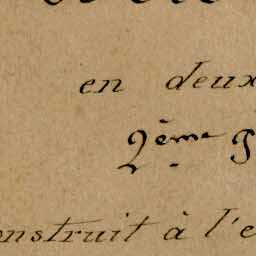 en deux
2ème
onstruit à l'e